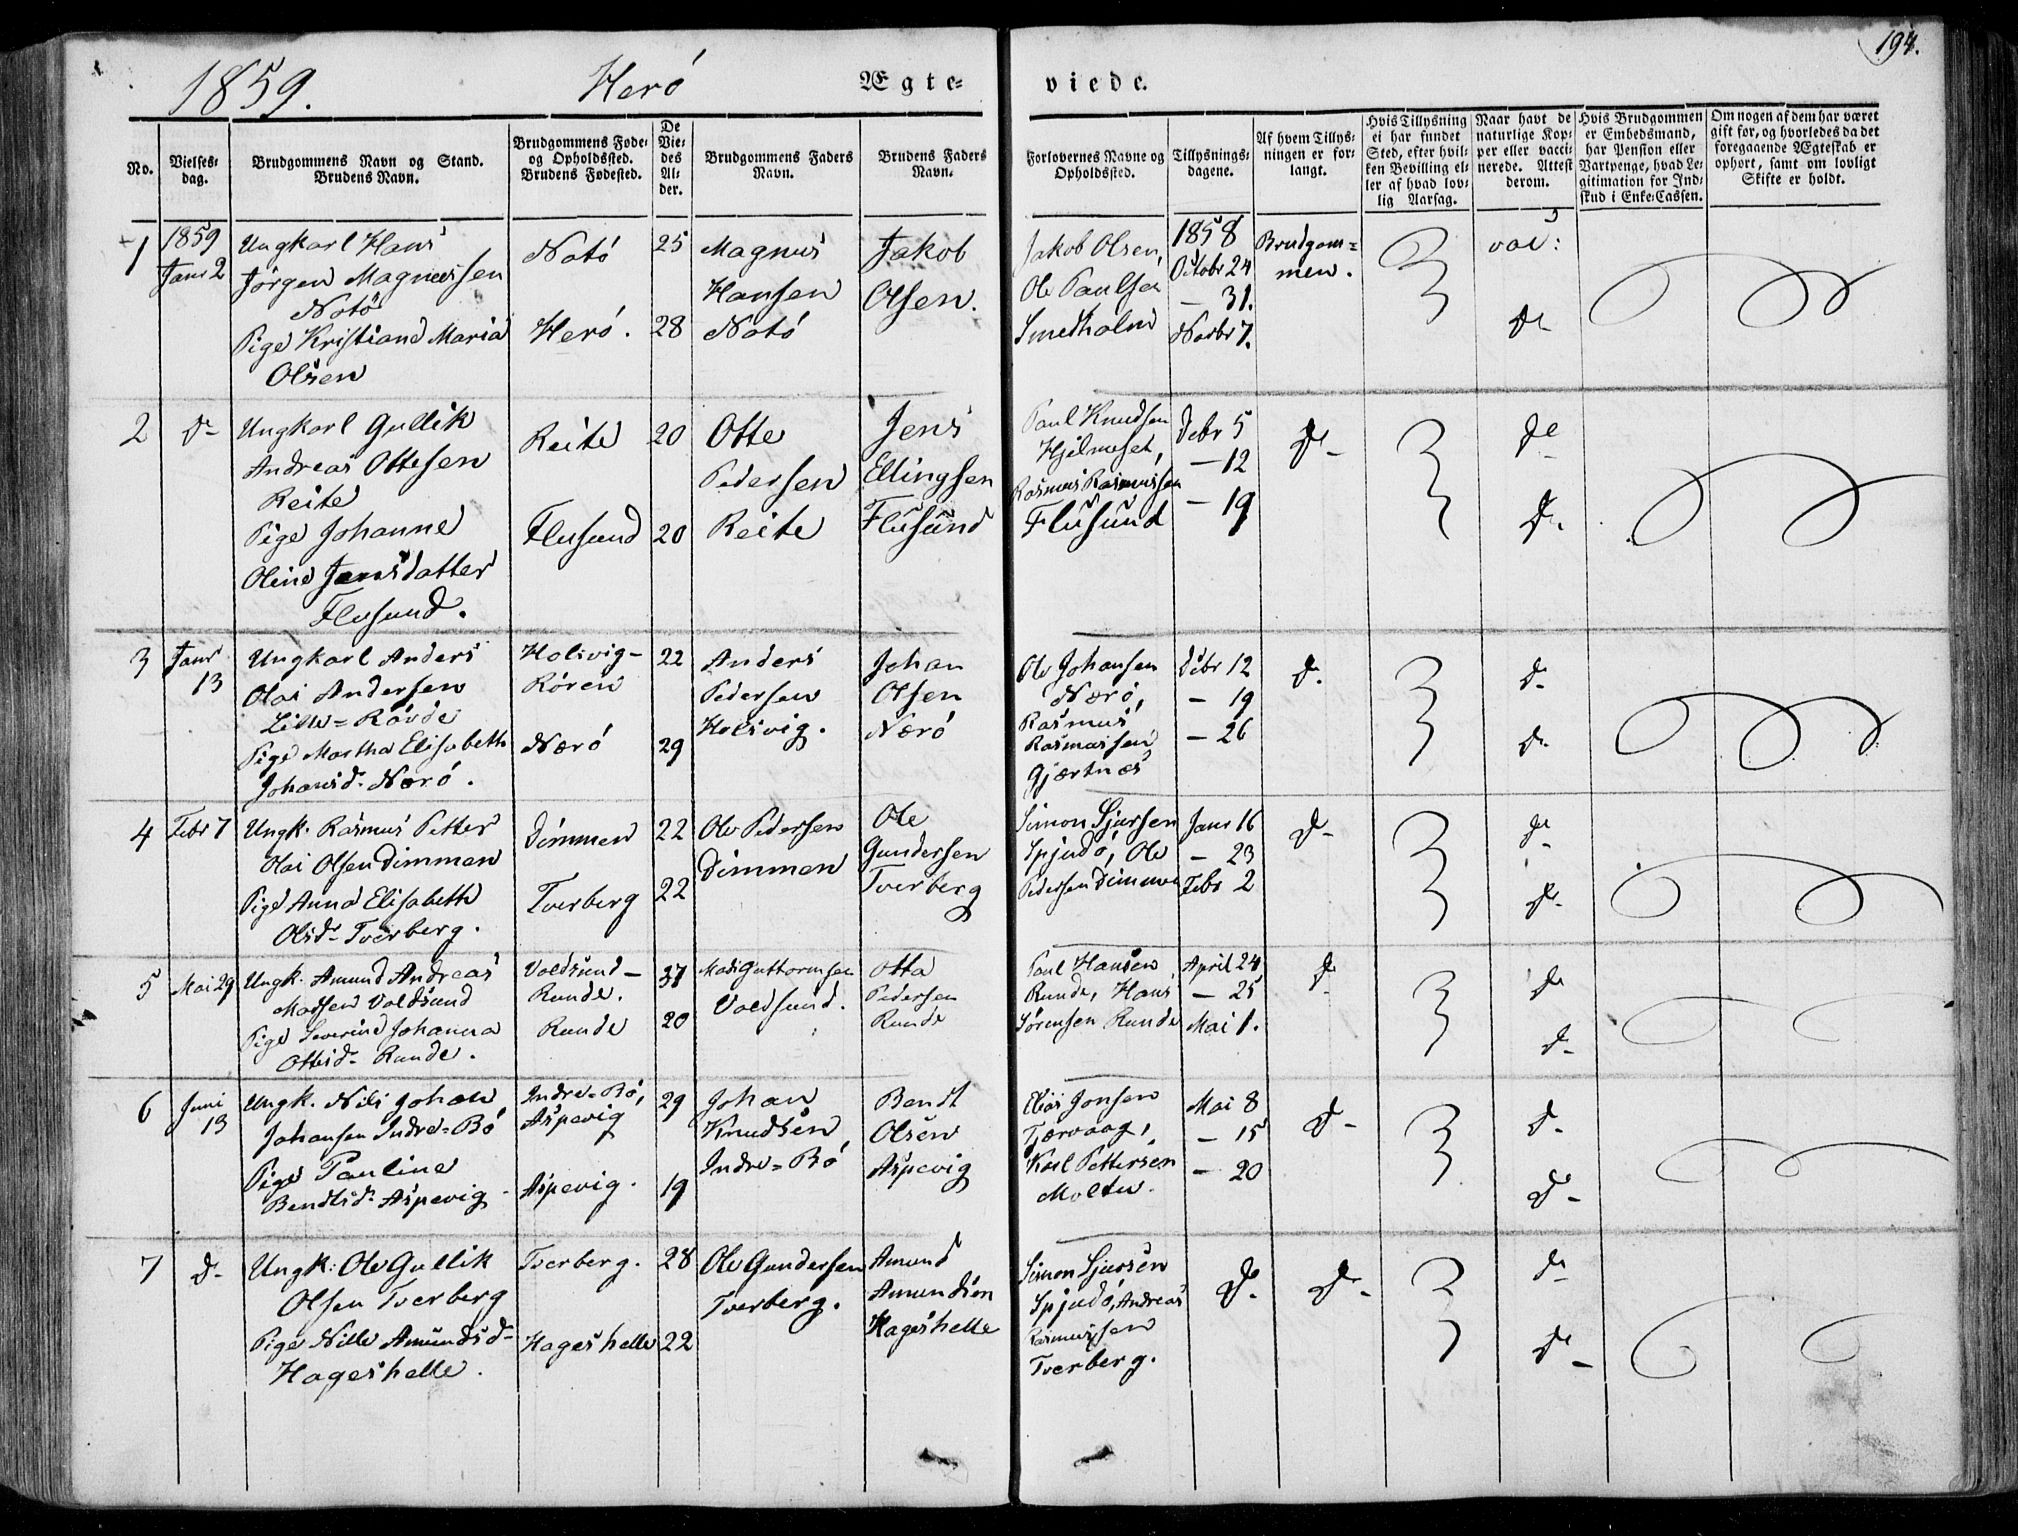 194.
1859. Herö Ægte= viede.
No.
Vielses=
dag.
Brudgommens Navn og Stand.
Brudens Navn.
Brudgommens Føde=
og Opholdssted.
Brudens Fødested.
De
Vie=
des
Al=
der.
Brudgommens Faders
Navn.
Brudens Faders
Navn.
Forlovernes Navne og
Opholdssted.
Tillysnings=
dagene.
Af hvem Tillys=
ningen er for=
langt.
Hvis Tillysning
ei har fundet
Sted, efter hvil=
ken Bevilling el=
ler af hvad lov=
lig Aarsag.
Naar havt de
naturlige Kop=
per eller vacci=
nerede. Attest
derom.
Hvis Brudgommen
er Embedsmand,
har Pension eller
Vartpenge, hvad Le=
gitimation for Ind=
skud i Enke=Cassen.
Om nogen af dem har været
gift før, og hvorledes da det
foregaaende Ægteskab er
ophørt, samt om lovligt
Skifte er holdt.
1
1859
Janr 2
Ungkarl Hans
Jörgen Magnussen
Notö
Pige Kristiane Maria
Olsen
Notö
Herö.
25
28
Magnus
Hansen
Notö
Jakob
Olsen.
Jakob Olsen,
Ole Paulsen
Smedholm
1858
Octobr 24
— 31.
Novbr 7.
Brudgom=
men.
vac:
Do
2
Do
Ungkarl Gullik
Andreas Ottesen
Reite
Pige Johanne
Oline Jensdatter
Flusund.
Reite
Flusund
20
20
Otte
Pedersen
Reite
Jens
Ellingsen
Flusund
Paul Knudsen
Hjelmeset,
Rasmus Rasmussen
Flusund
Debr 5
— 12
— 19
Do
Do
Do
3
Janr
13
Ungkarl Anders
Olai Andersen
Lille=Rövde
Pige Martha Elisabeth
Johansd. Nærö.
Holsvig—
Rören
Nærö
22
29
Anders
Pedersen
Holsvig.
Johan
Olsen
Nærö
Ole Johansen
Nærö,
Rasmus
Rasmussen
Gjærtnes
Debr 12
— 19
— 26
Do
Do
Do
4
Febr 7
Ungk. Rasmus Petter
Olai Olsen Dimmen
Pige Anna Elisabeth
Olsdr Tverberg.
Dimmen
Tverberg
22
22
Ole Pedersen
Dimmen
Ole
Gundersen
Tverberg
Simon Sjursen
Spjudö, Ole
Pedersen Dimmen
Janr 16
— 23
Febr 2
Do
Do
Do
5
Mai 29
Ungk. Amund Andreas
Madsen Voldsund
Pige Severine Johanna
Ottesdr Runde.
Voldsund—
Runde.
Runde
37
20
Mads Guttormsen
Voldsund.
Otto
Pedersen
Runde
Paul Hansen
Runde, Hans
Sörensen Runde
April 24
— 25
Mai 1.
Do
Do
Do
6
Juni
13
Ungk. Nils Johan
Johansen Indre=Bö
Pige Pauline
Bendtsdr Aspevig
Indre=Bö,
Aspevig
Aspevig.
29
19
Johan
Knudsen
Indre=Bö
Bendt
Olsen
Aspevig
Elias Jonsen
Tjærvaag,
Karl Pettersen
Moltu.
Mai 8
— 15
— 20
Do
Do
Do
7
Do
Ungk: Ole Gullik
Olsen Tverberg
Pige Nille Amundsd
Hageshelle.
Tverberg.
Hageshelle
28
22
Ole Gundersen
Tverberg.
Amund
Amundsen
Hageshelle
Simon Sjursen
Spjudö, Andreas
Rasmussen
Tverberg.
Do
Do
Do
Do